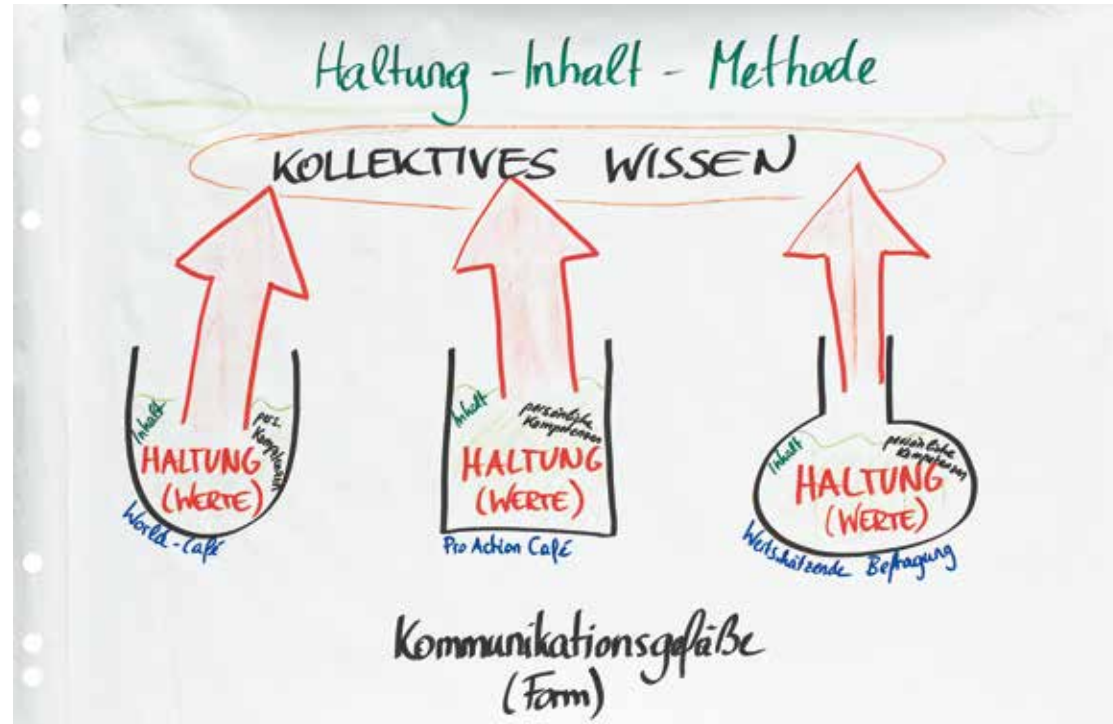 Haltung - Inhalt - Methode
KOLLEKTIVES WISSEN
Inhalt
pers.
Kompetenzen
HALTUNG
(WERTE)
World-Café
Inhalt
persönliche
Kompetenzen
HALTUNG
(WERTE)
Pro Action Café
Inhalt
persönliche
Kompetenzen
HALTUNG
(WERTE)
Wertschätzende Befragung
Kommunikationsgefäße
(Form)